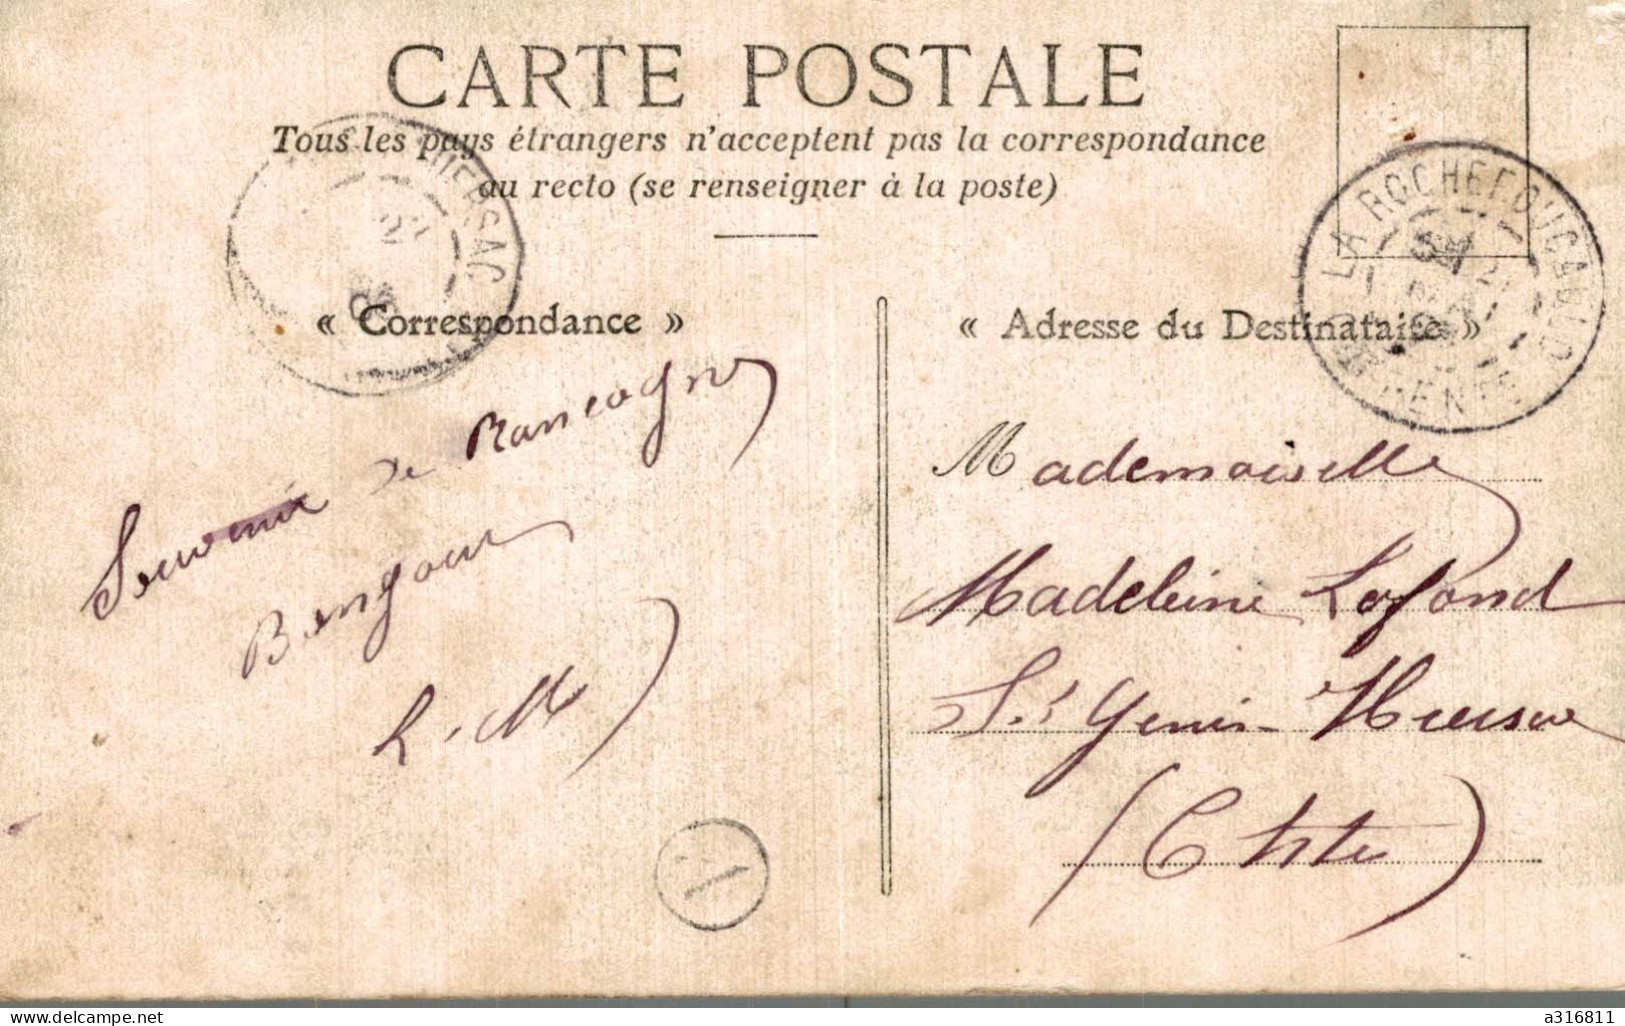 CARTE POSTALE
Tous les pays étrangers n'acceptent pas la correspondance
au recto (se renseigner à la poste)
HIERSAC
LA ROCHEFOUCAULD
« Correspondance »
« Adresse du Destinataire »
Souvenir de Rancogne
L. M
Mademoiselle
Madeleine Lafond
St Genis - Hiersac
(Chte)
1
delcampe.net
a316811